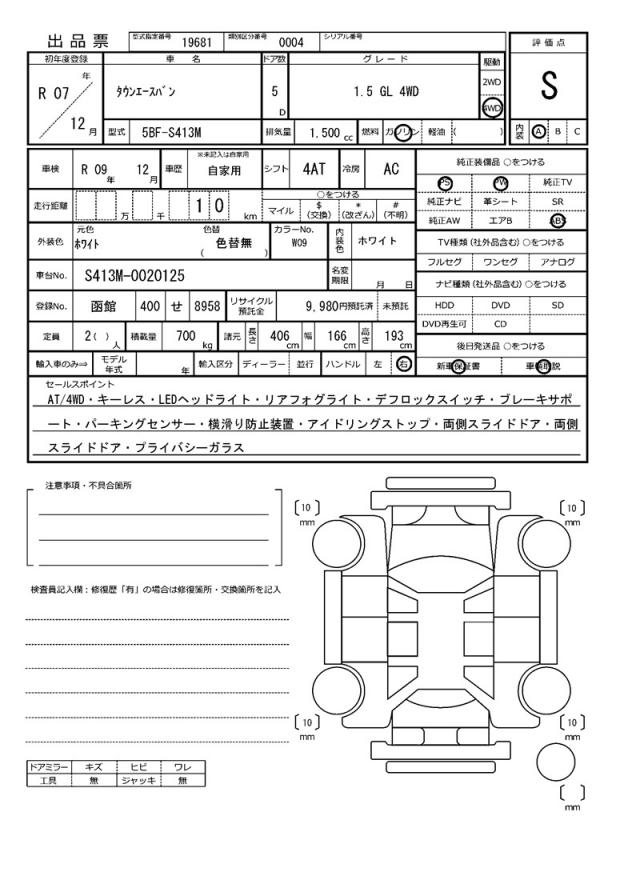 出品票
型式指定番号 19681 類別区分番号 0004 シリアル番号
初年度登録 車名 ドア数 グレード 駆動 評価点
R 07 年 12 月 タウンエースバン 5 D 1.5 GL 4WD 2WD 4WD S
型式 5BF-S413M 排気量 1.500 cc 燃料 ガソリン 軽油 ( ) 内装 A B C
車検 R 09 年 12 月 車歴 ※未記入は自家用 自家用 シフト 4AT 冷房 AC 純正装備品 ○をつける
PS PW 純正TV
走行距離 万 千 1 0 km ○をつける マイル $ (交換) * (改ざん) # (不明) 純正ナビ 革シート SR
純正AW エアB ABS
外装色 元色 ホワイト 色替 ( 色替無 ) カラーNo. W09 内装色 ホワイト TV種類 (社外品含む) ○をつける
フルセグ ワンセグ アナログ
車台No. S413M-0020125 名変期限 月 日 ナビ種類 (社外品含む) ○をつける
登録No. 函館 400 せ 8958 リサイクル預託金 9,980円預託済 未預託 HDD DVD SD
DVD再生可 CD
定員 2( ) 人 積載量 700 kg 諸元 長さ 406 cm 幅 166 cm 高さ 193 cm 後日発送品 ○をつける
輸入車のみ⇒ モデル年式 年 輸入区分 ディーラー 並行 ハンドル 左 右 新車保証書 車輌取説
セールスポイント
AT/4WD・キーレス・LEDヘッドライト・リアフォグライト・デフロックスイッチ・ブレーキサポ
ート・パーキングセンサー・横滑り防止装置・アイドリングストップ・両側スライドドア・両側
スライドドア・プライバシーガラス
注意事項・不具合箇所
[10] mm [10] mm
検査員記入欄：修復歴「有」の場合は修復箇所・交換箇所を記入
[10] mm [10] mm
ドアミラー キズ ヒビ ワレ
工具 無 ジャッキ 無
[ ] mm